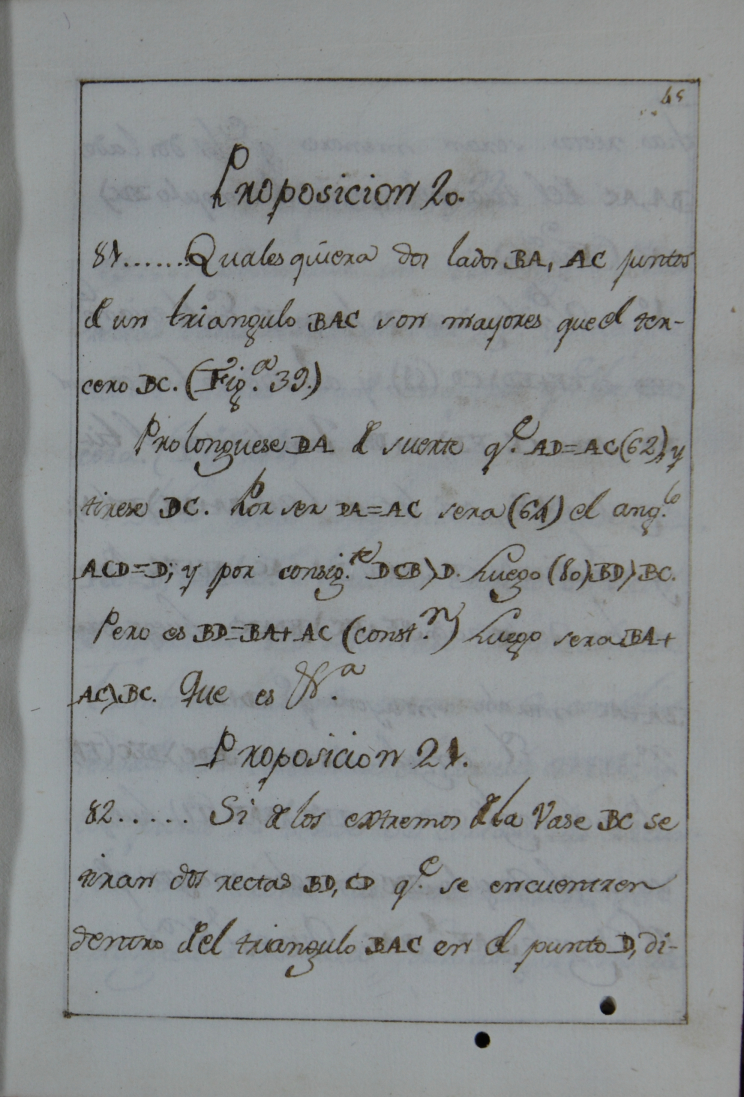 45
Proposicion 20.
81......Qualesquiera dos lados BA, AC juntos
de un triangulo BAC son mayores que el ter-
cero BC. (Fig.ª 39.)
Prolonguese BA de suerte q.e AD=AC(62), y
tirese DC. Por ser DA=AC sera (64) el ang.lo
ACD=D; y por consig.te DCB>D. Luego (80) BD>BC.
Pero es BD=BA+AC (const.n) Luego sera BA+
AC>BC. Que es &.ª
Proposicion 21.
82..... Si de los extremos de la Vase BC se
tiran dos rectas BD, CD q.e se encuentren
dentro del triangulo BAC en el punto D, di-